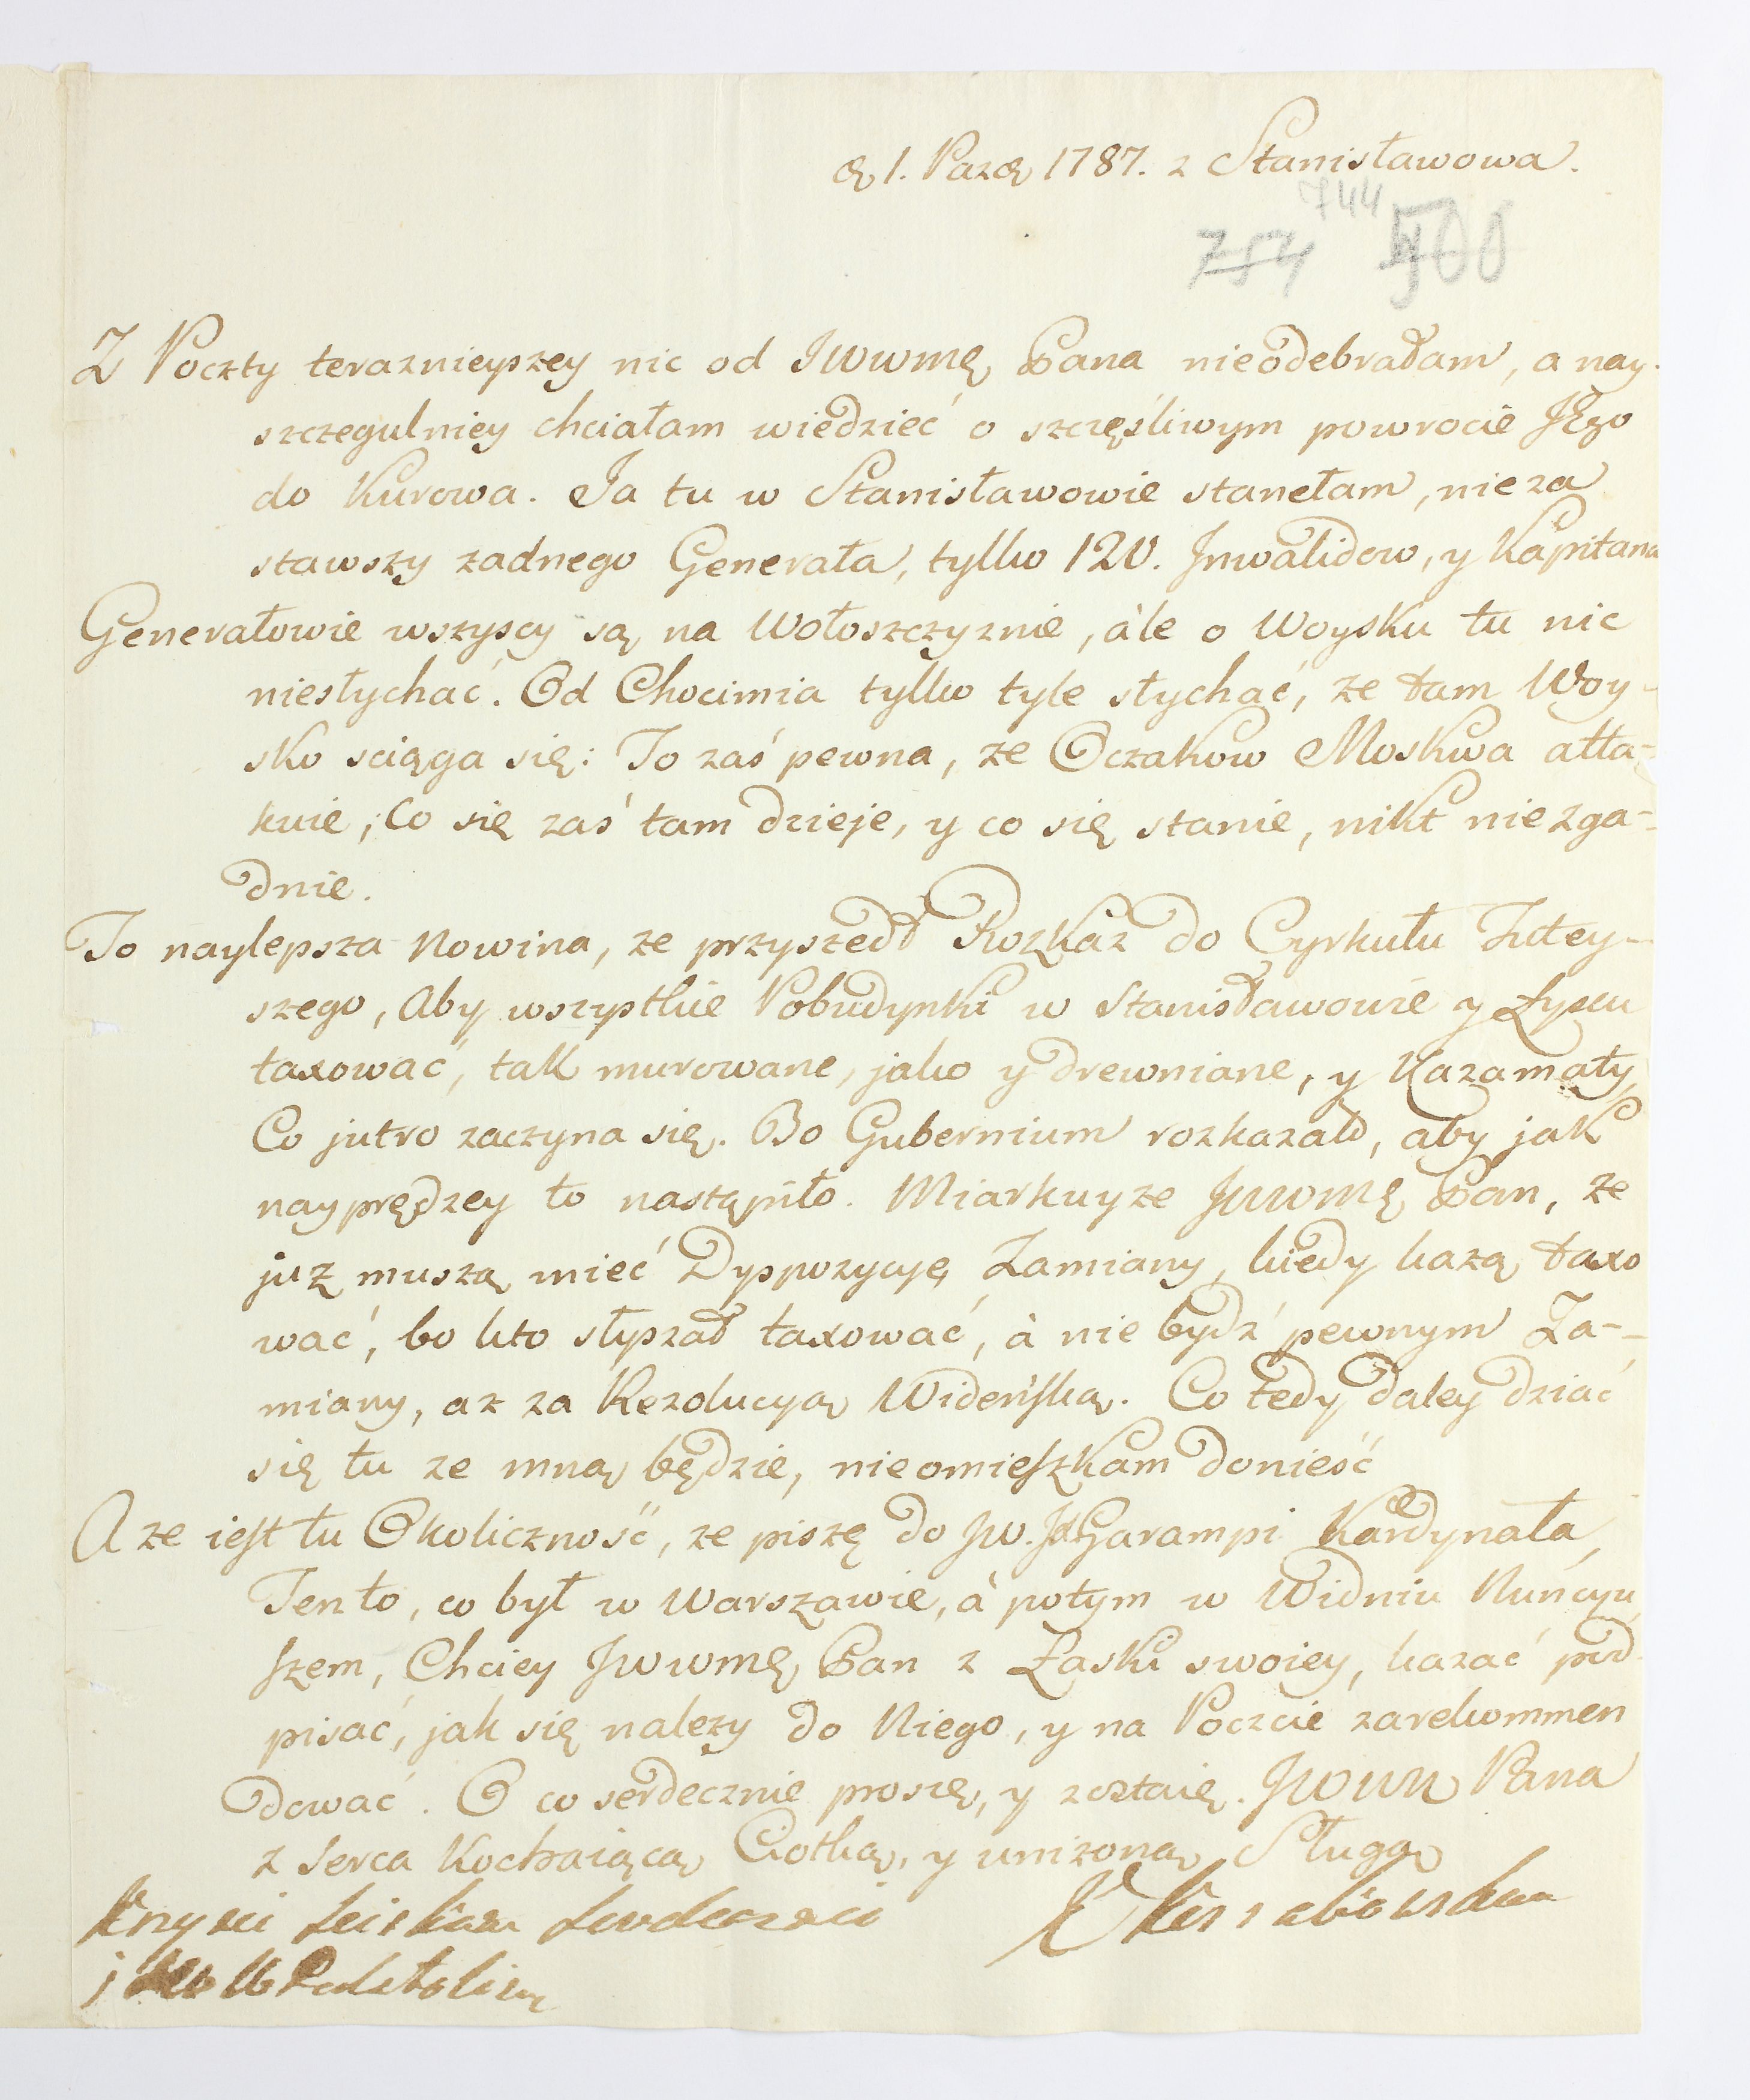 d. 1. Paźd. 1787. z Stanisławowa.
744
754 500
Z Poczty teraznieyszey nic od JWWMę Pana nieodebrałam, a nay-
szczegulniey chciałam wiedzieć o szczęśliwym powrocie JEgo
do Kurowa. Ja tu w Stanisławowie stanełam, nieza
stawszy zadnego Generała, tylko 120. Jnwalidow, y Kapitana
Generałowie wszyscy są na Wołoszczyznie, àle o Woysku tu nic
niesłychać. Od Chocimia tylko tyle słychać, ze tam Woy-
sko sciąga się: To zaś pewna, ze Oczakow Moskwa atta-
kuie; Co się zaś tam dzieje, y co się stanie, nikt nie zga-
dnie.
To naylepsza Nowina, ze przyszedł Rozkaz do Cyrkułu Tutey-
szego, Aby wszystkie Pobudynki w Stanisławowie y Łyscu
taxować, tak murowane, jako y drewniane, y Kazamaty,
Co jutro zaczyna się. Bo Gubernium rozkazało, aby jak
nayprędzey to nastąpiło. Miarkuyze JWWMę Pan, ze
juz muszą mieć Dyspozycyę Zamiany, kiedy kazą taxo
wać, bo kto słyszał taxować, à nie bydź pewnym Za-
miany, az za Rezolucyą Wideńską. Co tedy daley dziać
się tu ze mną będzie, nieomieszkam donieść
A ze iest tu Okoliczność, ze piszę do JW. JX Garampi Kardynała,
Ten to, co był w Warszawie, à potym w Widniu Nuńcyu
szem, Chciey JWWMę Pan z Łaski swoiey, kazać pod-
pisać, jak się nalezy do Niego, y na Poczcie zarekommen
dować. O co serdecznie proszę, y zostaię. JWWM Pana
z Serca Kochaiącą Ciotką, y unizoną Sługą
Krysi sciskam serdeczni
i
K Kossakowska